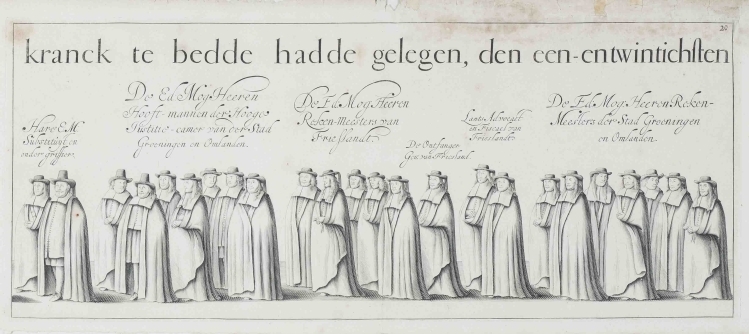 28
kranck te bedde hadde gelegen, den een-entwintichsten
De Ed Mog Heeren
Hooft-mannen der Hooge
Iustitie-camer van der Stad
Groeningen en Omlanden.
De Ed Mog Heeren
Reken-Meesters van
Frieslandt.
De Ed Mog Heeren Reken-
Meesters der Stad Groeningen
en Omlanden.
Hare E M
Substituyt en
onder-griffier.
De Ontfanger
Gen. van Frieslandt
Lants Advocaet
en Fiscael van
Frieslandt.